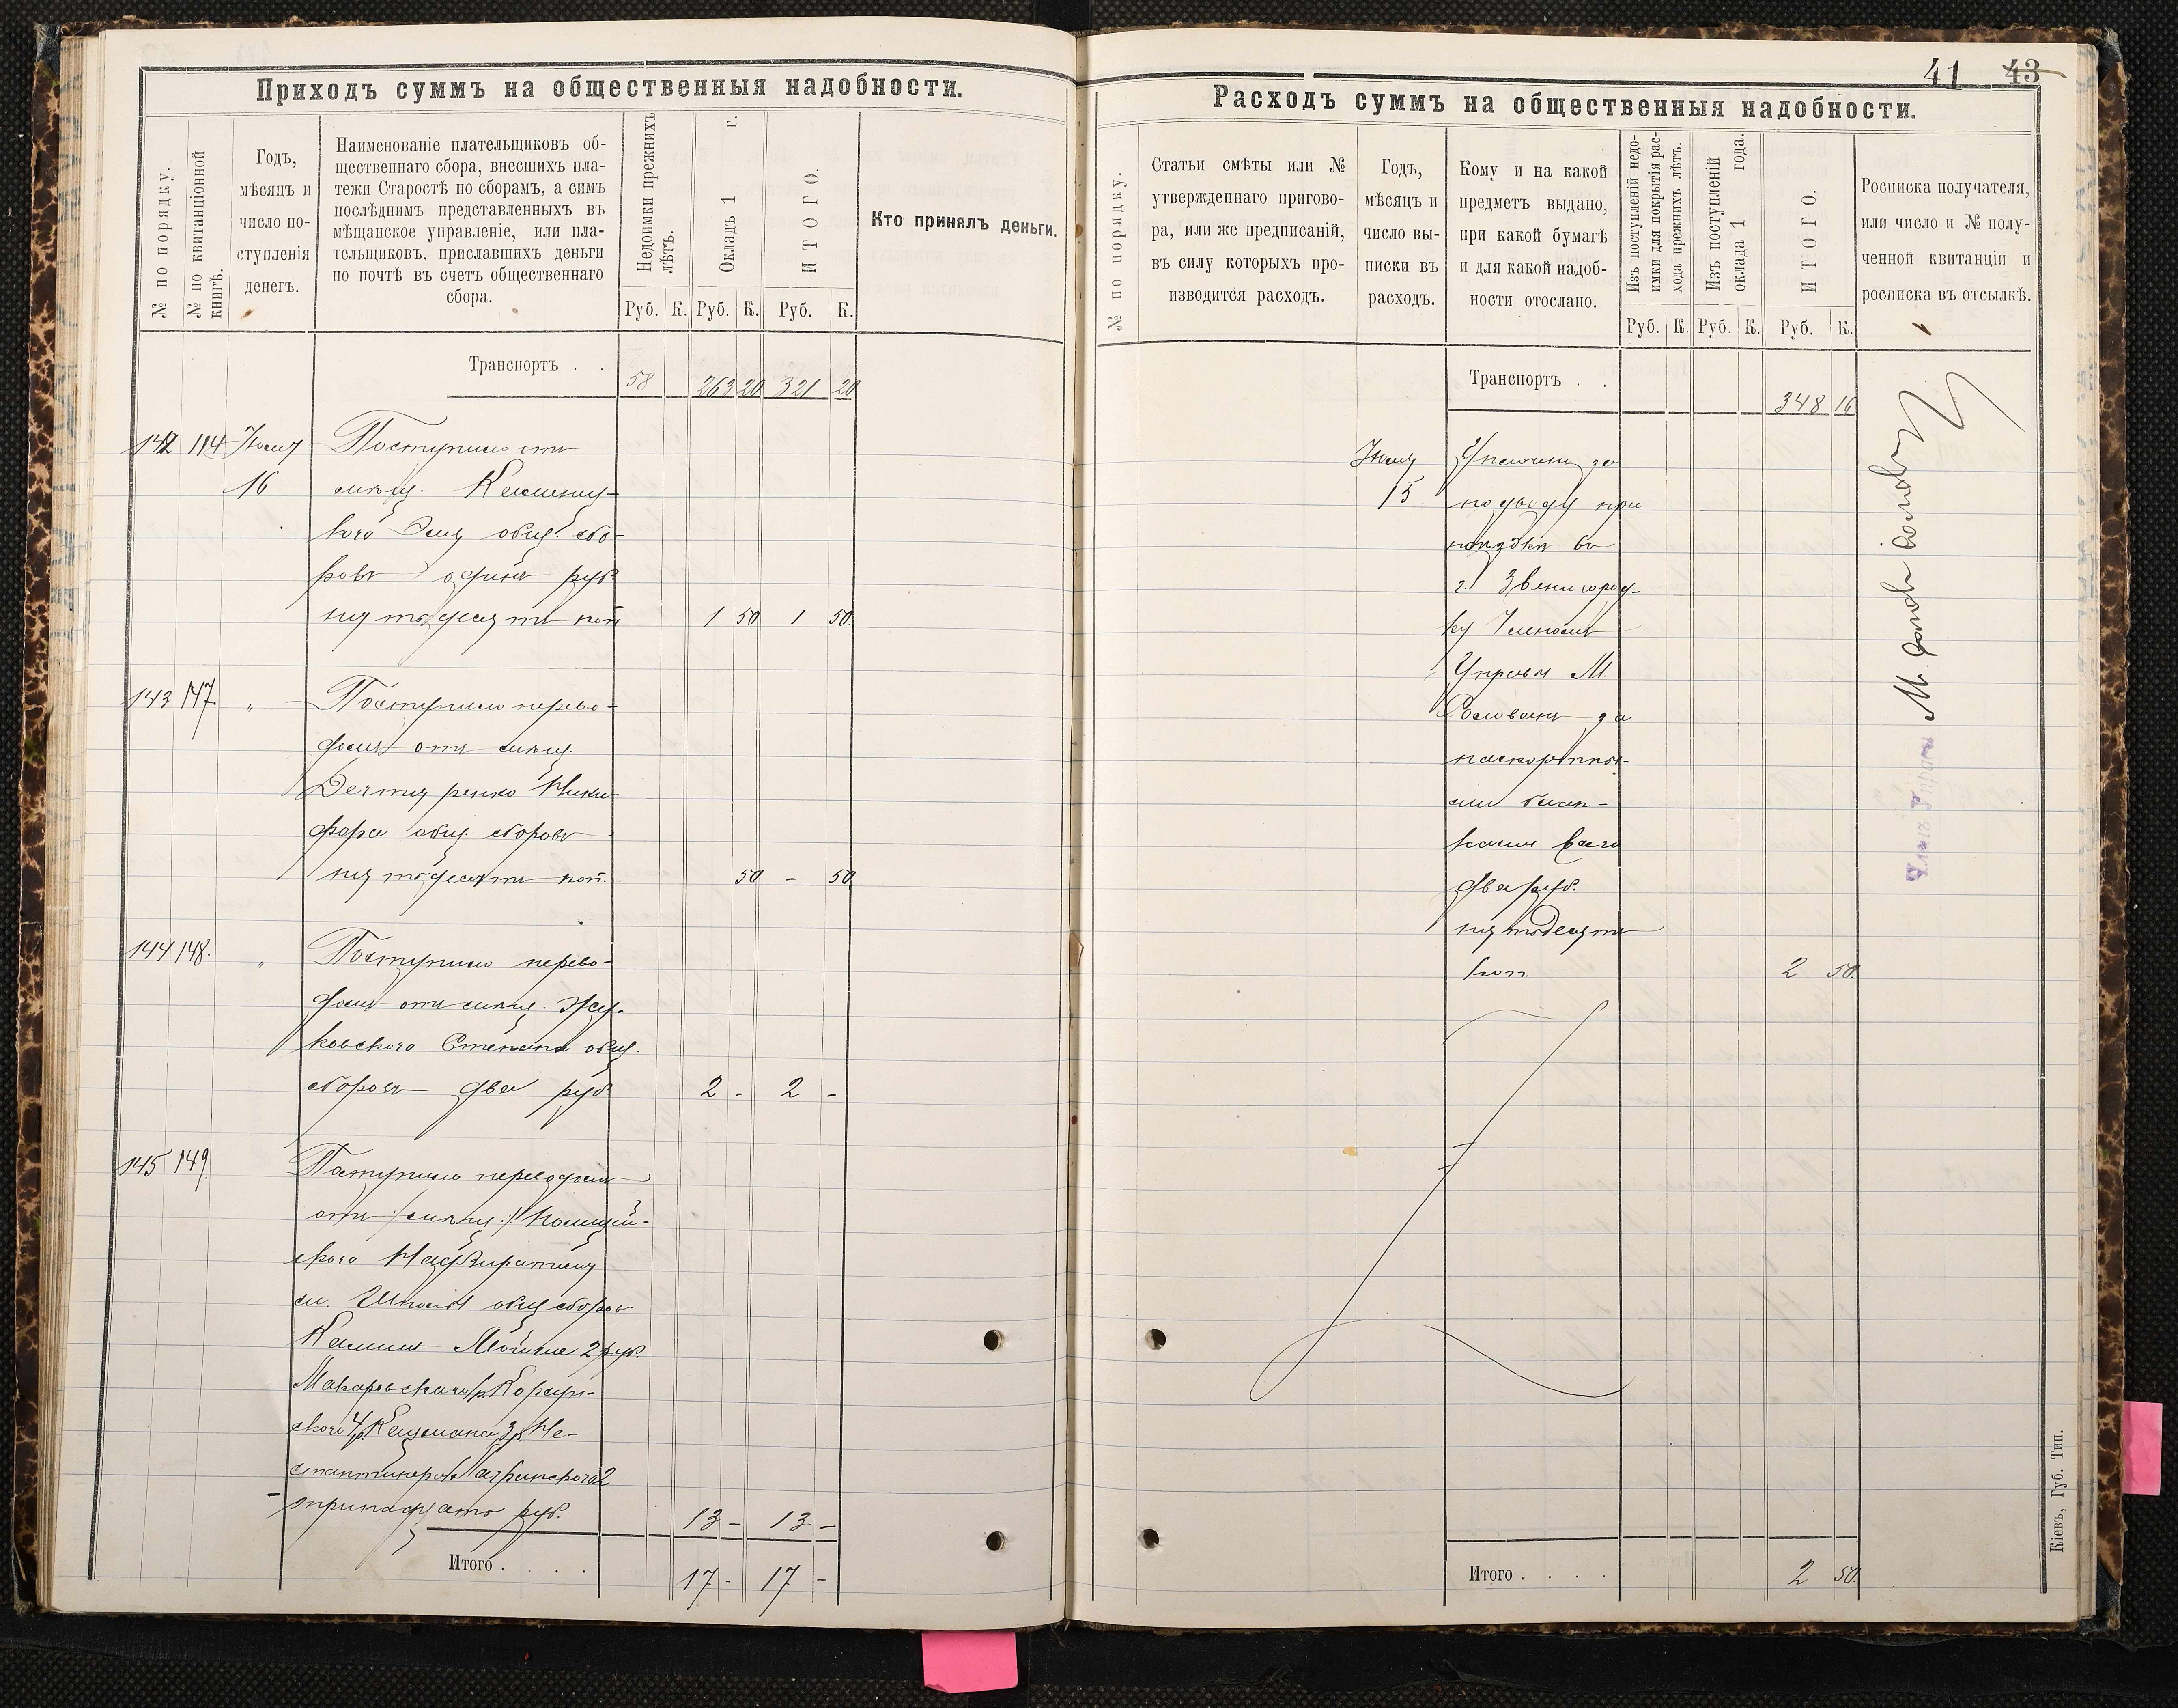 Приходъ суммъ на общественныя надобности.
№ по порядку.
№ по квитанціонной
книгѣ.
Годъ,
мѣсяцъ и
число по-
ступленія
денегъ.
Наименованіе плательщиковъ об-
щественнаго сбора, внесшихъ пла-
тежи Старостѣ по сборамъ, а симъ
послѣднимъ представленныхъ въ
мѣщанское управленіе, или пла-
тельщиковъ, приславшихъ деньги
по почтѣ въ счетъ общественнаго
сбора.
Недоимки прежнихъ
лѣтъ.
Окладъ 1 г.
ИТОГО.
Кто принялъ деньги.
Руб. К. Руб. К. Руб. К.
Транспортъ . .
58 263 20 321 20
142 114 Поступило отъ
16 мѣщ.
общ. сбо-
ровъ одинъ руб.
пятьдесятъ коп 1 50 1 50
143 147 " Поступило перево-
домъ отъ мѣщ.
Дехтяренко Ники-
фора общ. сборовъ
пятьдесятъ коп. 50 - 50
144 148. " Поступило перево-
домъ отъ мѣщ. Жу-
ковского Степана общ.
сборовъ два руб. 2 - 2 -
145 149. Поступило переводомъ
отъ Полицей-
ского Надзирателя
м. Шполы общ сборовъ
2 руб.
Макаровского
ского 4р. 3р.
2
тринадцать руб. 13 - 13 -
Итого . . . .
17 - 17 -
41 43
Расходъ суммъ на общественныя надобности.
№ по порядку.
Статьи смѣты или №
утвержденнаго пригово-
ра, или же предписаній,
въ силу которыхъ про-
изводится расходъ.
Годъ,
мѣсяцъ и
число вы-
писки въ
расходъ.
Кому и на какой
предметъ выдано,
при какой бумагѣ
и для какой надоб-
ности отослано.
Изъ поступленій недо-
имки для покрытія рас-
хода прежнихъ лѣтъ.
Изъ поступленій
оклада 1 года.
ИТОГО.
Росписка получателя,
или число и № полу-
ченной квитанціи и
росписка въ отсылкѣ.
Руб. К. Руб. К. Руб. К.
Транспортъ . .
348 16
за
15 подводу при
поѣздкѣ въ
г. Звенигород-
ку Членомъ
Управы М.
за
паспортны-
ми блан-
ками всего
два руб.
пятьдесятъ
коп. 2 50.
Членъ Управы М.
Итого . . . .
2 50.
Кіевъ, Губ. Тип.